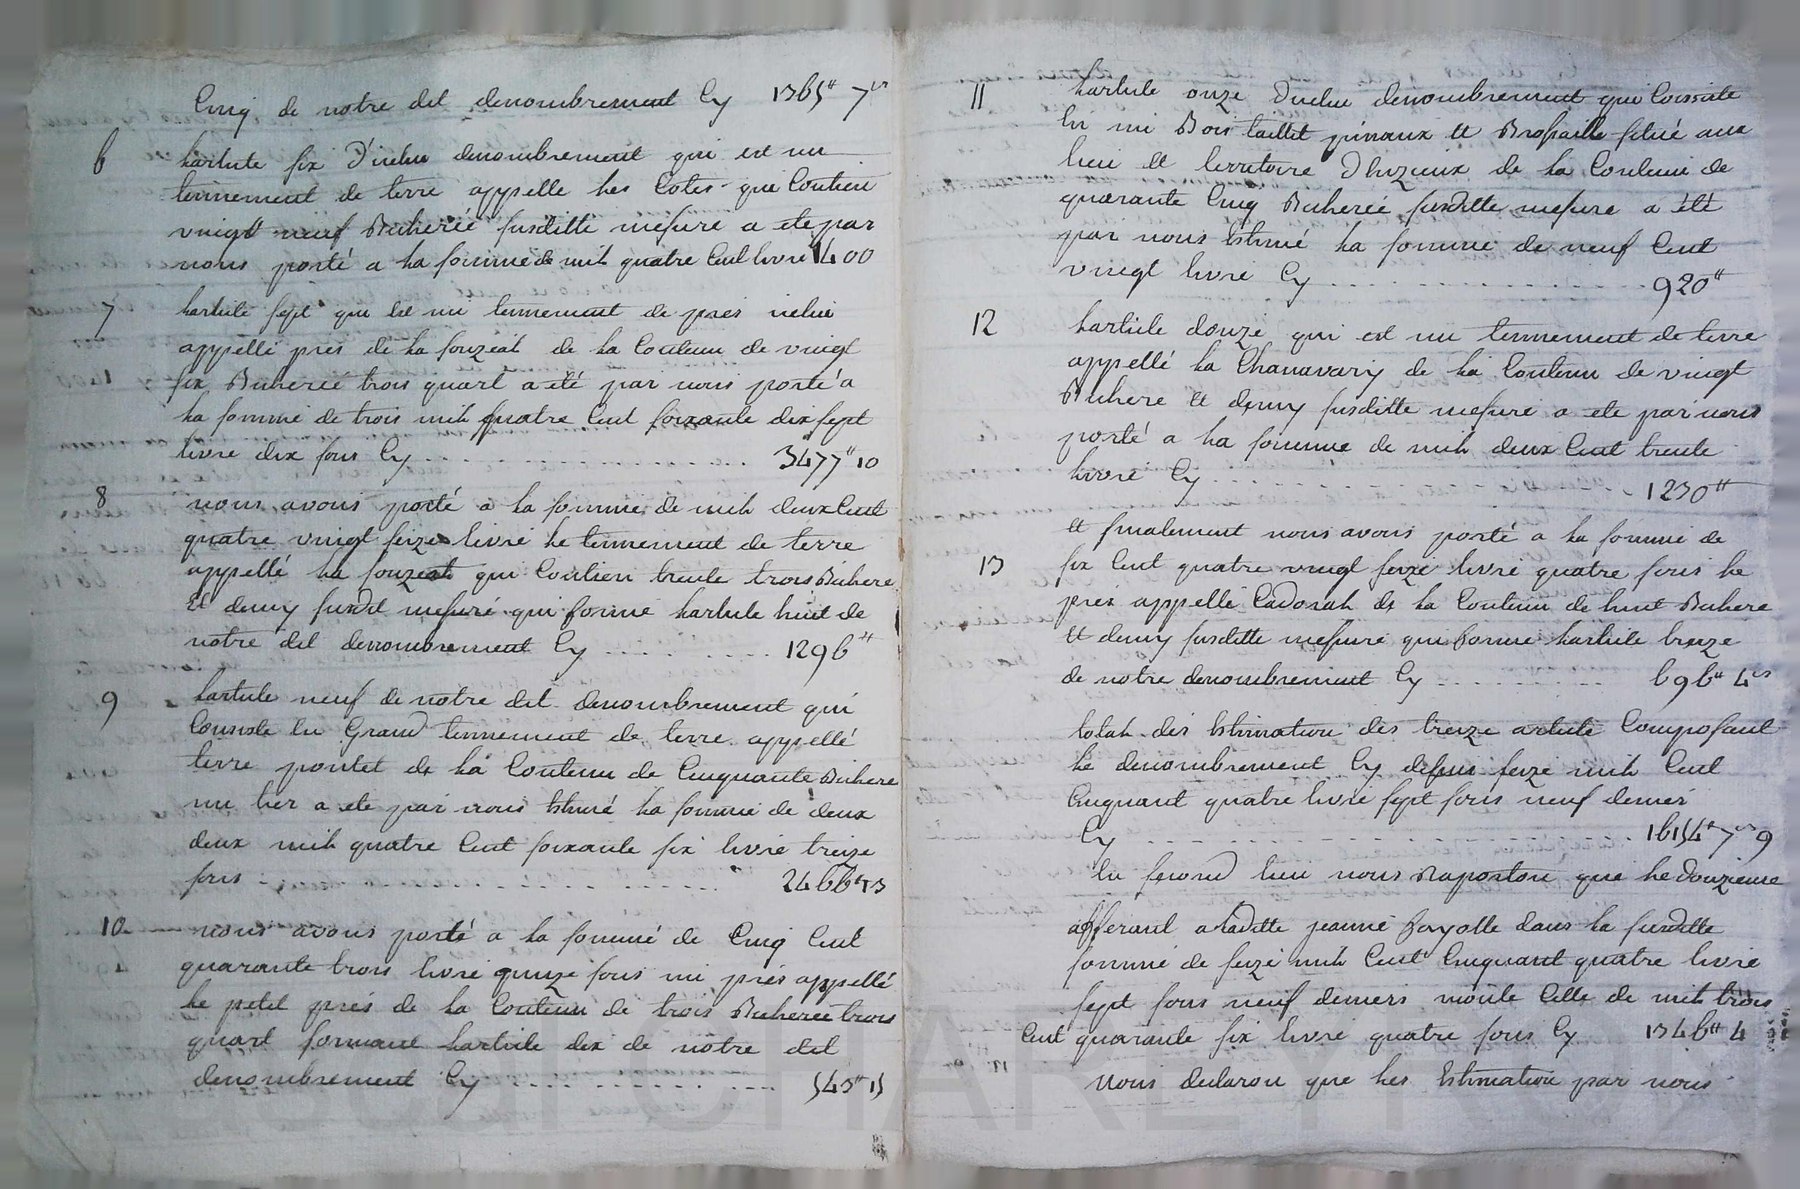 Cinq de notre dit denombrement Cy 1365# 7 s
6 Larticle six D'icelui denombrement qui est un
tennement de terre appelle les Cotes qui Contien
vingt neuf Bicherée susditte mesure a ete par
nous porté a la somme de mil quatre Cent livre 1400
7 Larticle sept qui Est un tennement de pres
appellé pres de la fouzeat de la Contenu de vingt
six Bicherée trois quart a été par nous porté a
la somme de trois mil quatre Cent soixante dix sept
livre dix sous Cy 3477# 10
8 nous avons porté a la somme de mil deux Cent
quatre vingt seize livre le tennement de terre
appellé la fouzeat qui Contien trente trois Bichere
Et demy susdit mesure qui forme Larticle huit de
notre dit denombrement Cy 1296#
9 Larticle neuf de notre dit denombrement qui
Consiste En Grand tennement de terre appellé
terre pontet de la Contenu de Cinquante Bichere
un tier a ete par nous Estimé la somme de deux
deux mil quatre Cent soixante six livre treize
sous 2466# 13
10 nous avons porté a la somme de Cinq Cent
quarante trois livre quinze sous un pres appellé
le petit prés de la Contenu de trois Bicherée trois
quart formant Larticle dix de notre dit
denombrement Cy 543# 15
11 Lartcle onze D'icelui denombrement qui Consiste
En un Bois taillit pinaux Et Brossaille situé aux
lieu et territoire Dhizieux de la Contenu de
quarante Cinq Bicherée susditte mesure a été
par nous Estimé la somme de neuf Cent
vingt livre Cy 920#
12 Lartcle douze qui est un tennement de terre
appellé la Chanavary de la Contenu de vingt
Bichere Et demy susditte mesure a ete par nous
porté a la somme de mil deux Cent trente
livre Cy 1230#
et finalement nous avons porté a la somme de
13 six Cent quatre vingt seize livre quatre sous le
prés appellé Cadorat de la Contenu de huit Bichere
et demy susditte mesure qui forme Lartcle treize
de notre denombrement Cy 696# 4 s
total des Estimation des treize article Composant
le denombrement Cy desus seize mil Cent
Cinquant quatre livre sept sous neuf denier
Cy 16154# 7 s 9
En second lieu nous Raporton que le Douzieme
afferant a laditte jeanne fayolle dans la susditte
somme de seize mil Cent Cinquant quatre livre
sept sous neuf deniers monte Celle de mil trois
Cent quarante six livre quatre sous Cy 1346# 4
Nous declaron que les Estimation par nous